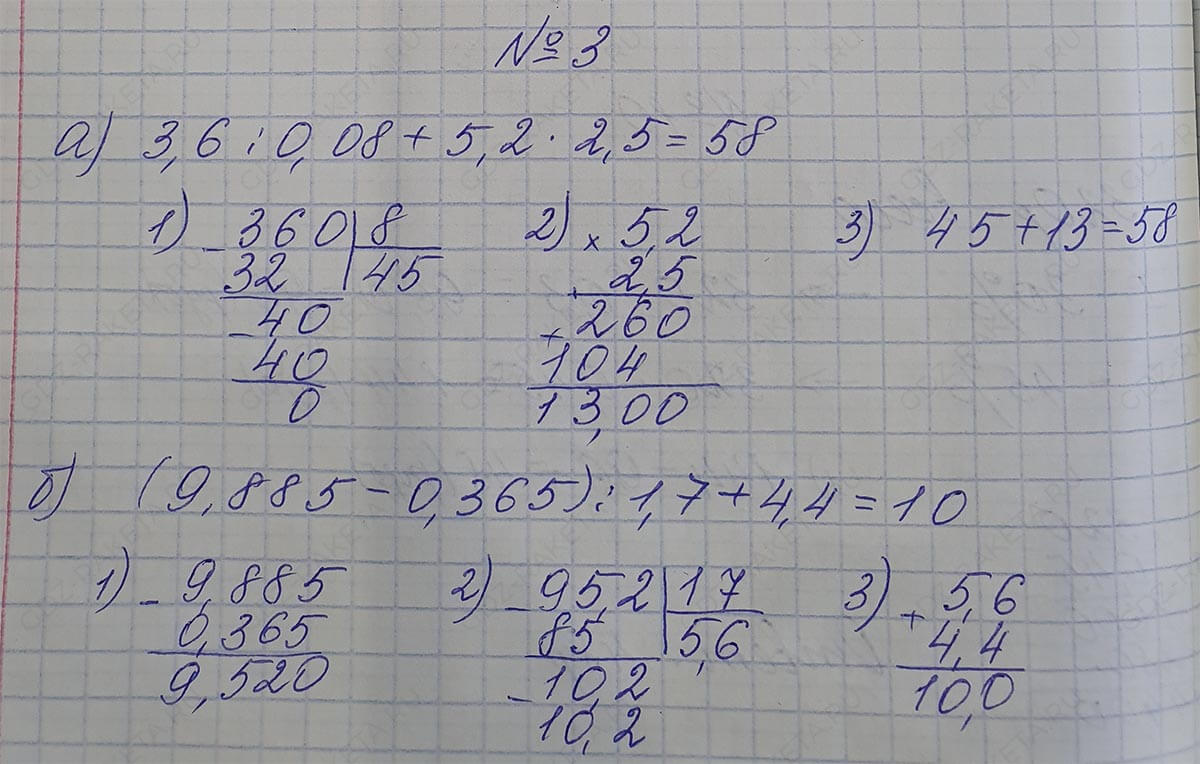 № 3
а) 3,6 : 0,08 + 5,2 · 2,5 = 58
1) - 360 | 8
32 | 45
- 40
40
0
2) × 5,2
2,5
+ 260
104
13,00
3) 45 + 13 = 58
б) (9,885 - 0,365) : 1,7 + 4,4 = 10
1) - 9,885
0,365
9,520
2) - 95,2 | 17
85 | 5,6
- 10,2
10,2
3) + 5,6
4,4
10,0